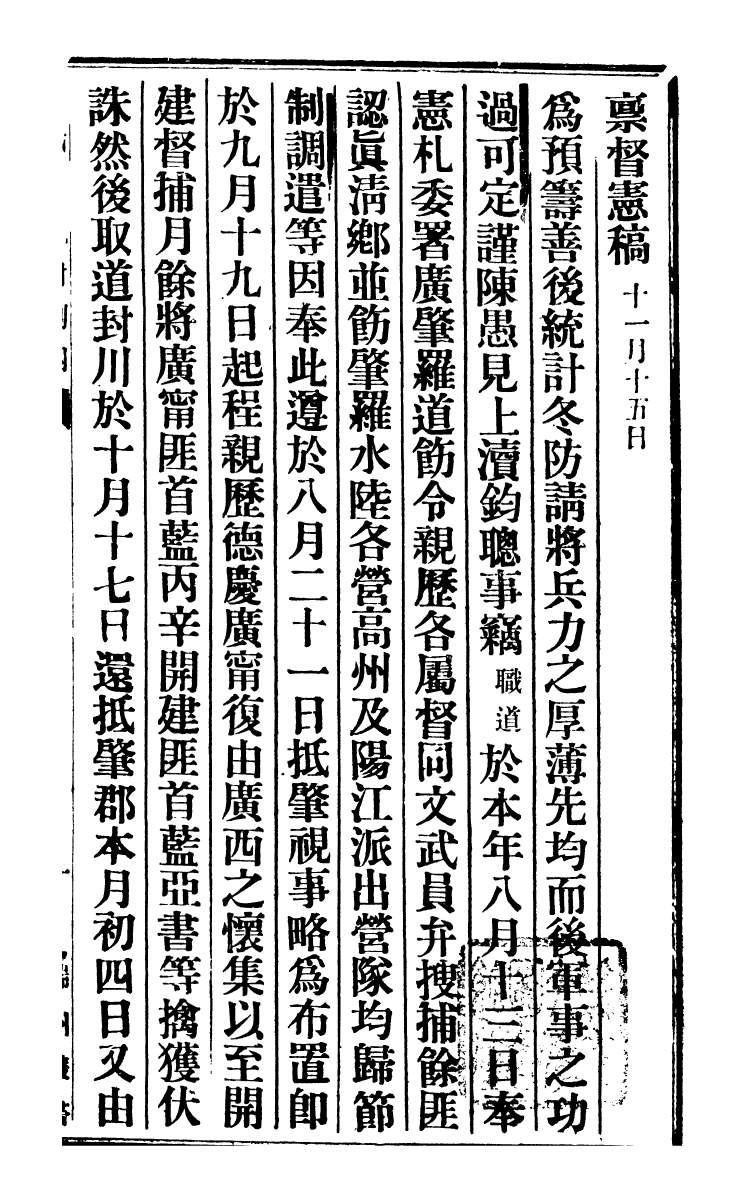 禀督憲稿 十一月十五日
爲預籌善後統計冬防請將兵力之厚薄先均而後軍事之功
過可定謹陳愚見上瀆鈞聰事竊職道於本年八月十三日奉
憲札委署廣肇羅道飭令親歷各屬督同文武員弁搜捕餘匪
認眞淸鄕並飭肇羅水陸各營高州及陽江派出營隊均歸節
制調遣等因奉此遵於八月二十一日抵肇視事略爲布置卽
於九月十九日起程親歷德慶廣甯復由廣西之懷集以至開
建督捕月餘將廣甯匪首藍丙辛開建匪首藍亞書等擒獲伏
誅然後取道封川於十月十七日還抵肇郡本月初四日又由